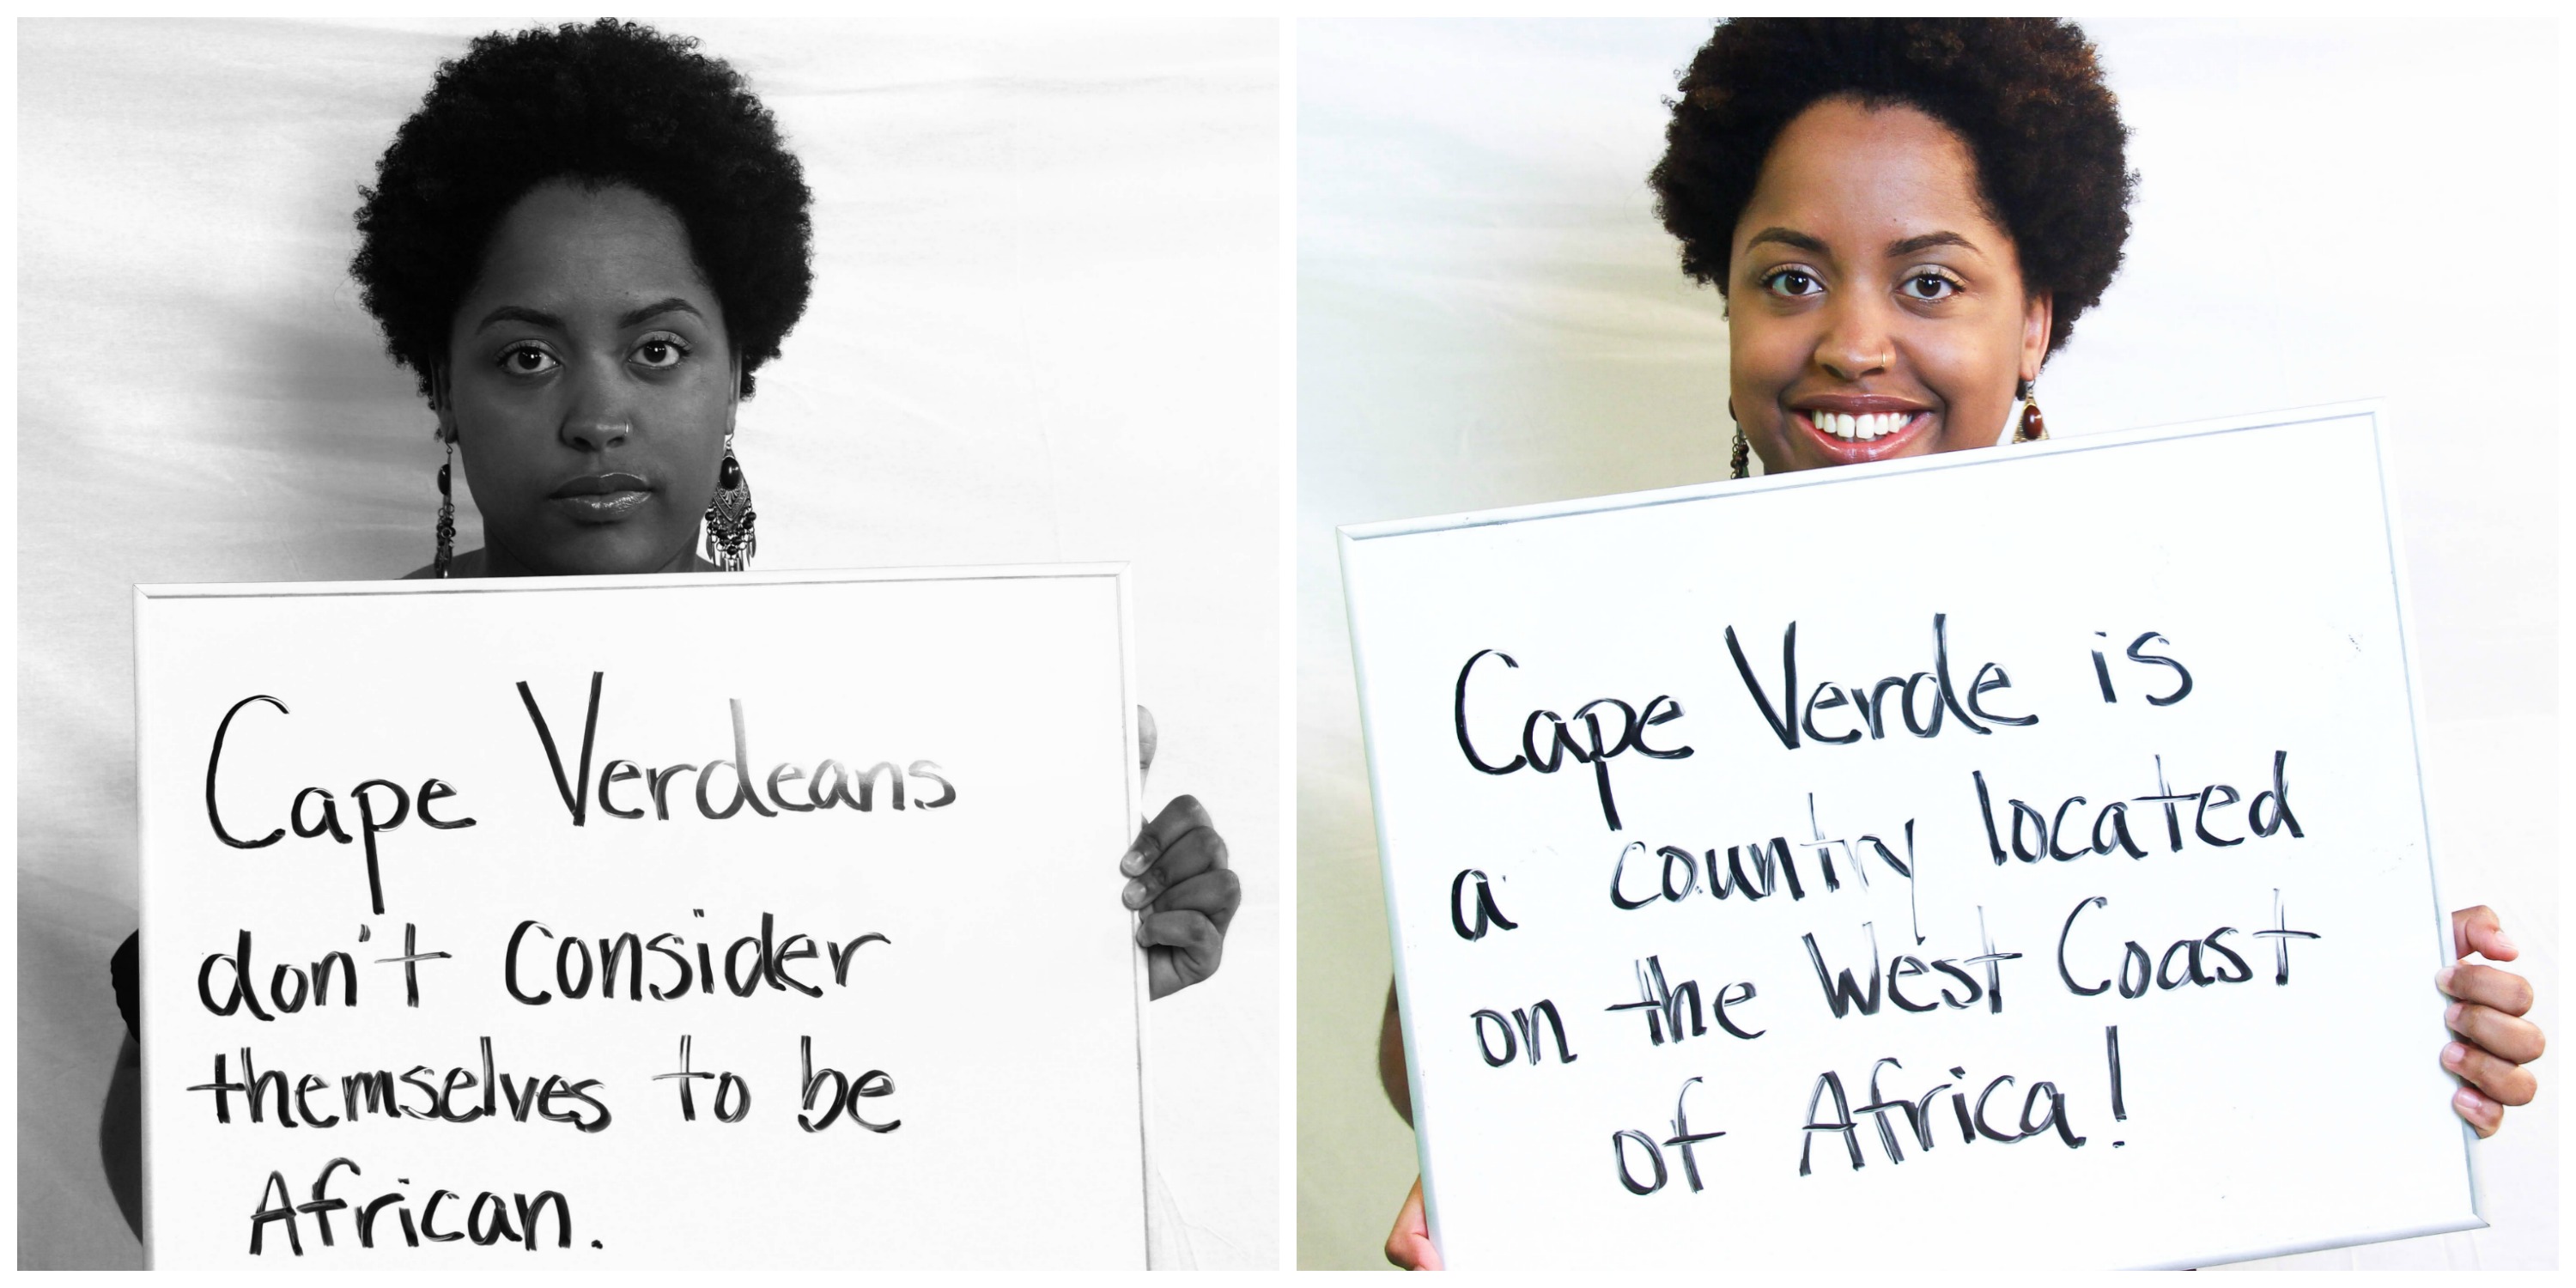 Cape Verdeans
don't consider
themselves to be
African.
Cape Verde is
a country located
on the West Coast
of Africa!